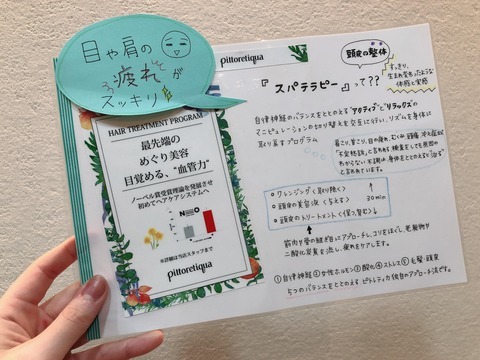 目や肩の
疲れが
スッキリ
pittoretiqua
HAIR TREATMENT PROGRAM
最先端の
めぐり美容
目覚める、“血管力”
ノーベル賞受賞理論を発展させ
初めてヘアケアシステムへ
NO
※詳細は当店スタッフまで
pittoretiqua
頭皮の整体
『スパテラピー』って??
すっきり、
生まれ変わったような
体感と実感
自律神経のバランスをととのえる“アクティブ”と“リラックス”の
マニピュレーションの切り替えを交互に行い、リズムを身体に
取り戻すプログラム
肩こり、首こり、目の疲れ、むくみ、頭痛、冷え症など
「不定愁訴」と言われる検査をしても原因の
わからない不調は身体をととのえると“治る”
と言われています。
○クレンジング<取り除く>
○頭皮の美容液<与える>
○頭皮のトリートメント<保つ、整える>
30min
筋肉や骨の継ぎ目にアプローチし、コリをほぐし、老廃物や
二酸化炭素を流し、疲れをケアします。
①自律神経②女性ホルモン③酸化④ストレス⑤毛髪・頭皮
5つのバランスをととのえるピトレティカ独自のアプローチ法です。